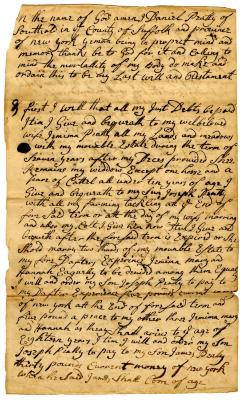 In the name of God amen I Daniel Platt of
in ye County of Suffolk and province
of new york yeoman being to perfect mind and
memory thanks be to God for it and Calling to
mind the mortallity of my Body do make and
ordain this to be my Last will and
first I will that all my Just Debts be paid
Itim I give and bequeath to my welbeloved
wife Jemima Platt all my Lands and meadows
with my movable Estate during the term of
years after my Deces provided She
Remains my widdow Except one horse and a
of Cattel and at ten years of age I
Give and bequeath to my son Joseph Platt
with all my farming tackling at ye End of
fore Said term or at the day of my wifes marring
and also my I Give him now Itim I give and
bequeath after the aforesaid term is Expired one the
Third part of my movable Estate to
my Jemima mary and
Hannah Equally to be devided among them Equal
I will and order my son Joseph Platt to pay to
my pound money
of new york at the End of fore said term and
five pound a peace to my other Jemima mary
and Hannah as they Shall arive to ye age of
Eighteen years Itim I will and order my son
Joseph Platt to pay to my son James Platt
thirty pounds Current money of new york
when he Said James Shall Com of age